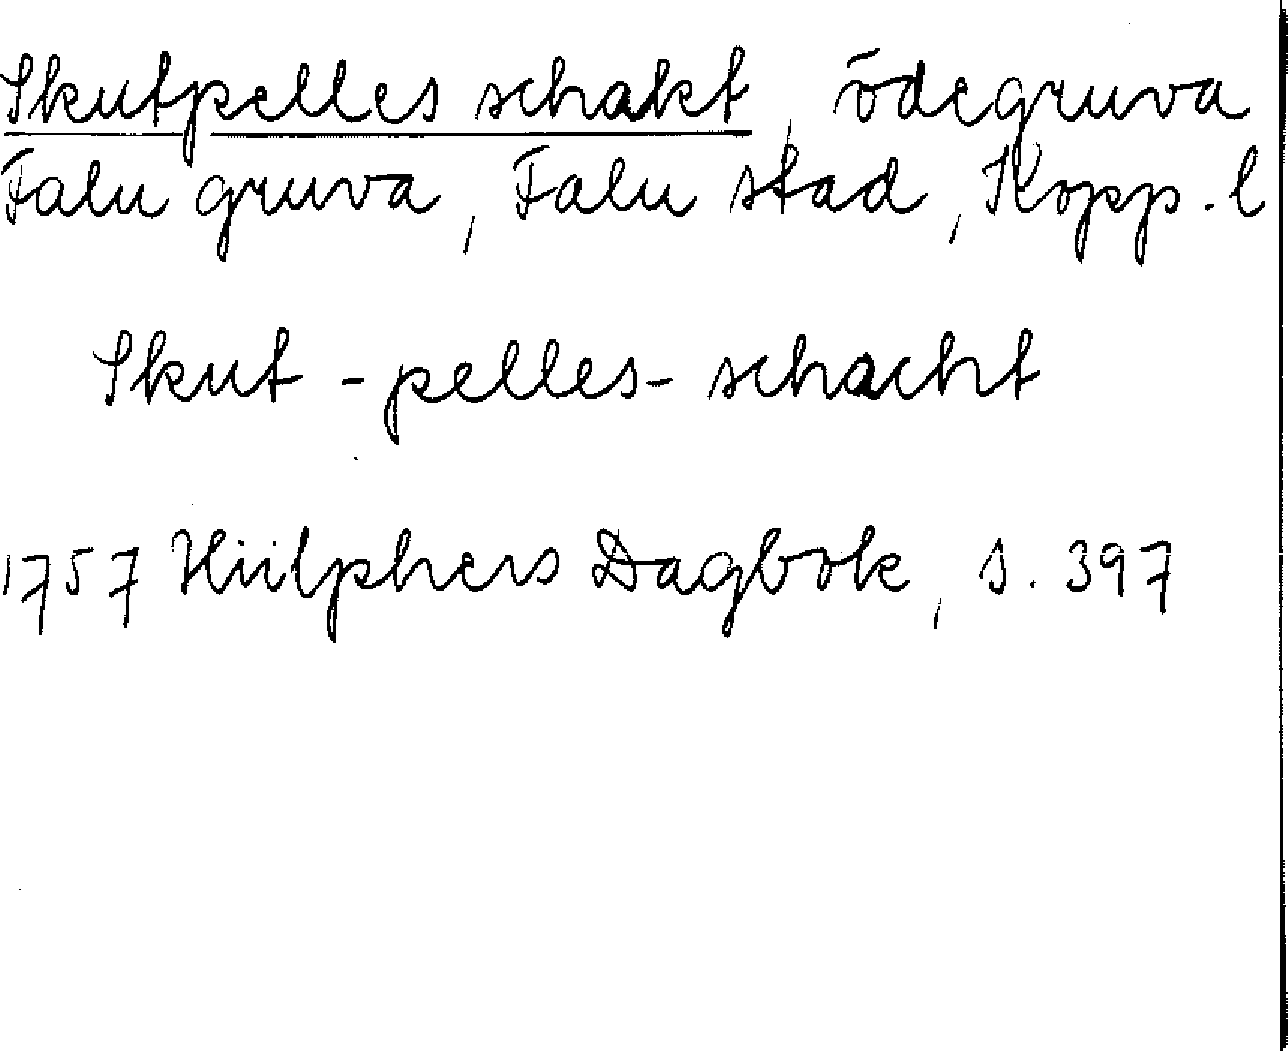 Skutpelles schakt, ödegruva
Falu gruva, Falu stad, Kopp. l
Skut-pelles-schacht
1757 Hülphers Dagbok, s. 397